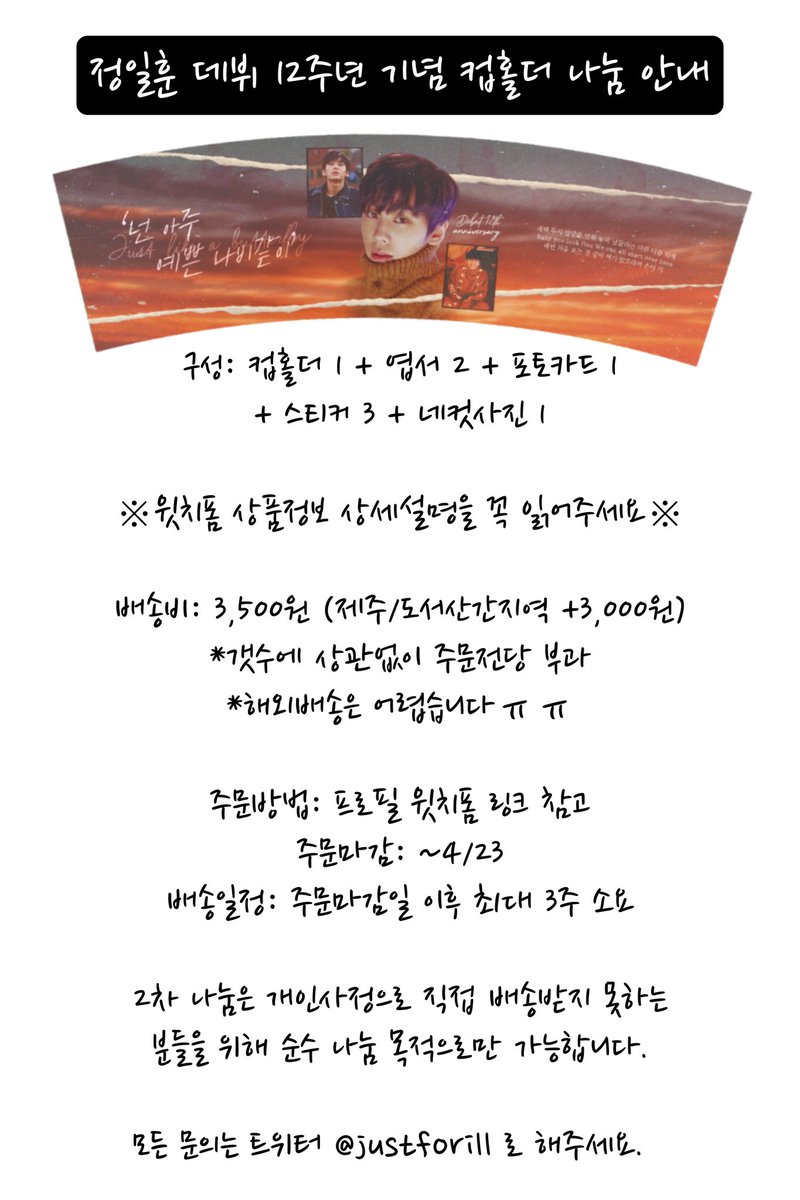 정일훈 데뷔 12주년 기념 컵홀더 나눔 안내
'넌 아주
예쁜 나비같이
Debut 12th
anniversary
Baby you look fine We can all start over here
구성: 컵홀더 1 + 엽서 2 + 포토카드 1
+ 스티커 3 + 네컷사진 1
※윗치폼 상품정보 상세설명을 꼭 읽어주세요※
배송비: 3,500원 (제주/도서산간지역 +3,000원)
*갯수에 상관없이 주문전당 부과
*해외배송은 어렵습니다 ㅠ ㅠ
주문방법: 프로필 윗치폼 링크 참고
주문마감: ~4/23
배송일정: 주문마감일 이후 최대 3주 소요
2차 나눔은 개인사정으로 직접 배송받지 못하는
분들을 위해 순수 나눔 목적으로만 가능합니다.
모든 문의는 트위터 @justforill 로 해주세요.